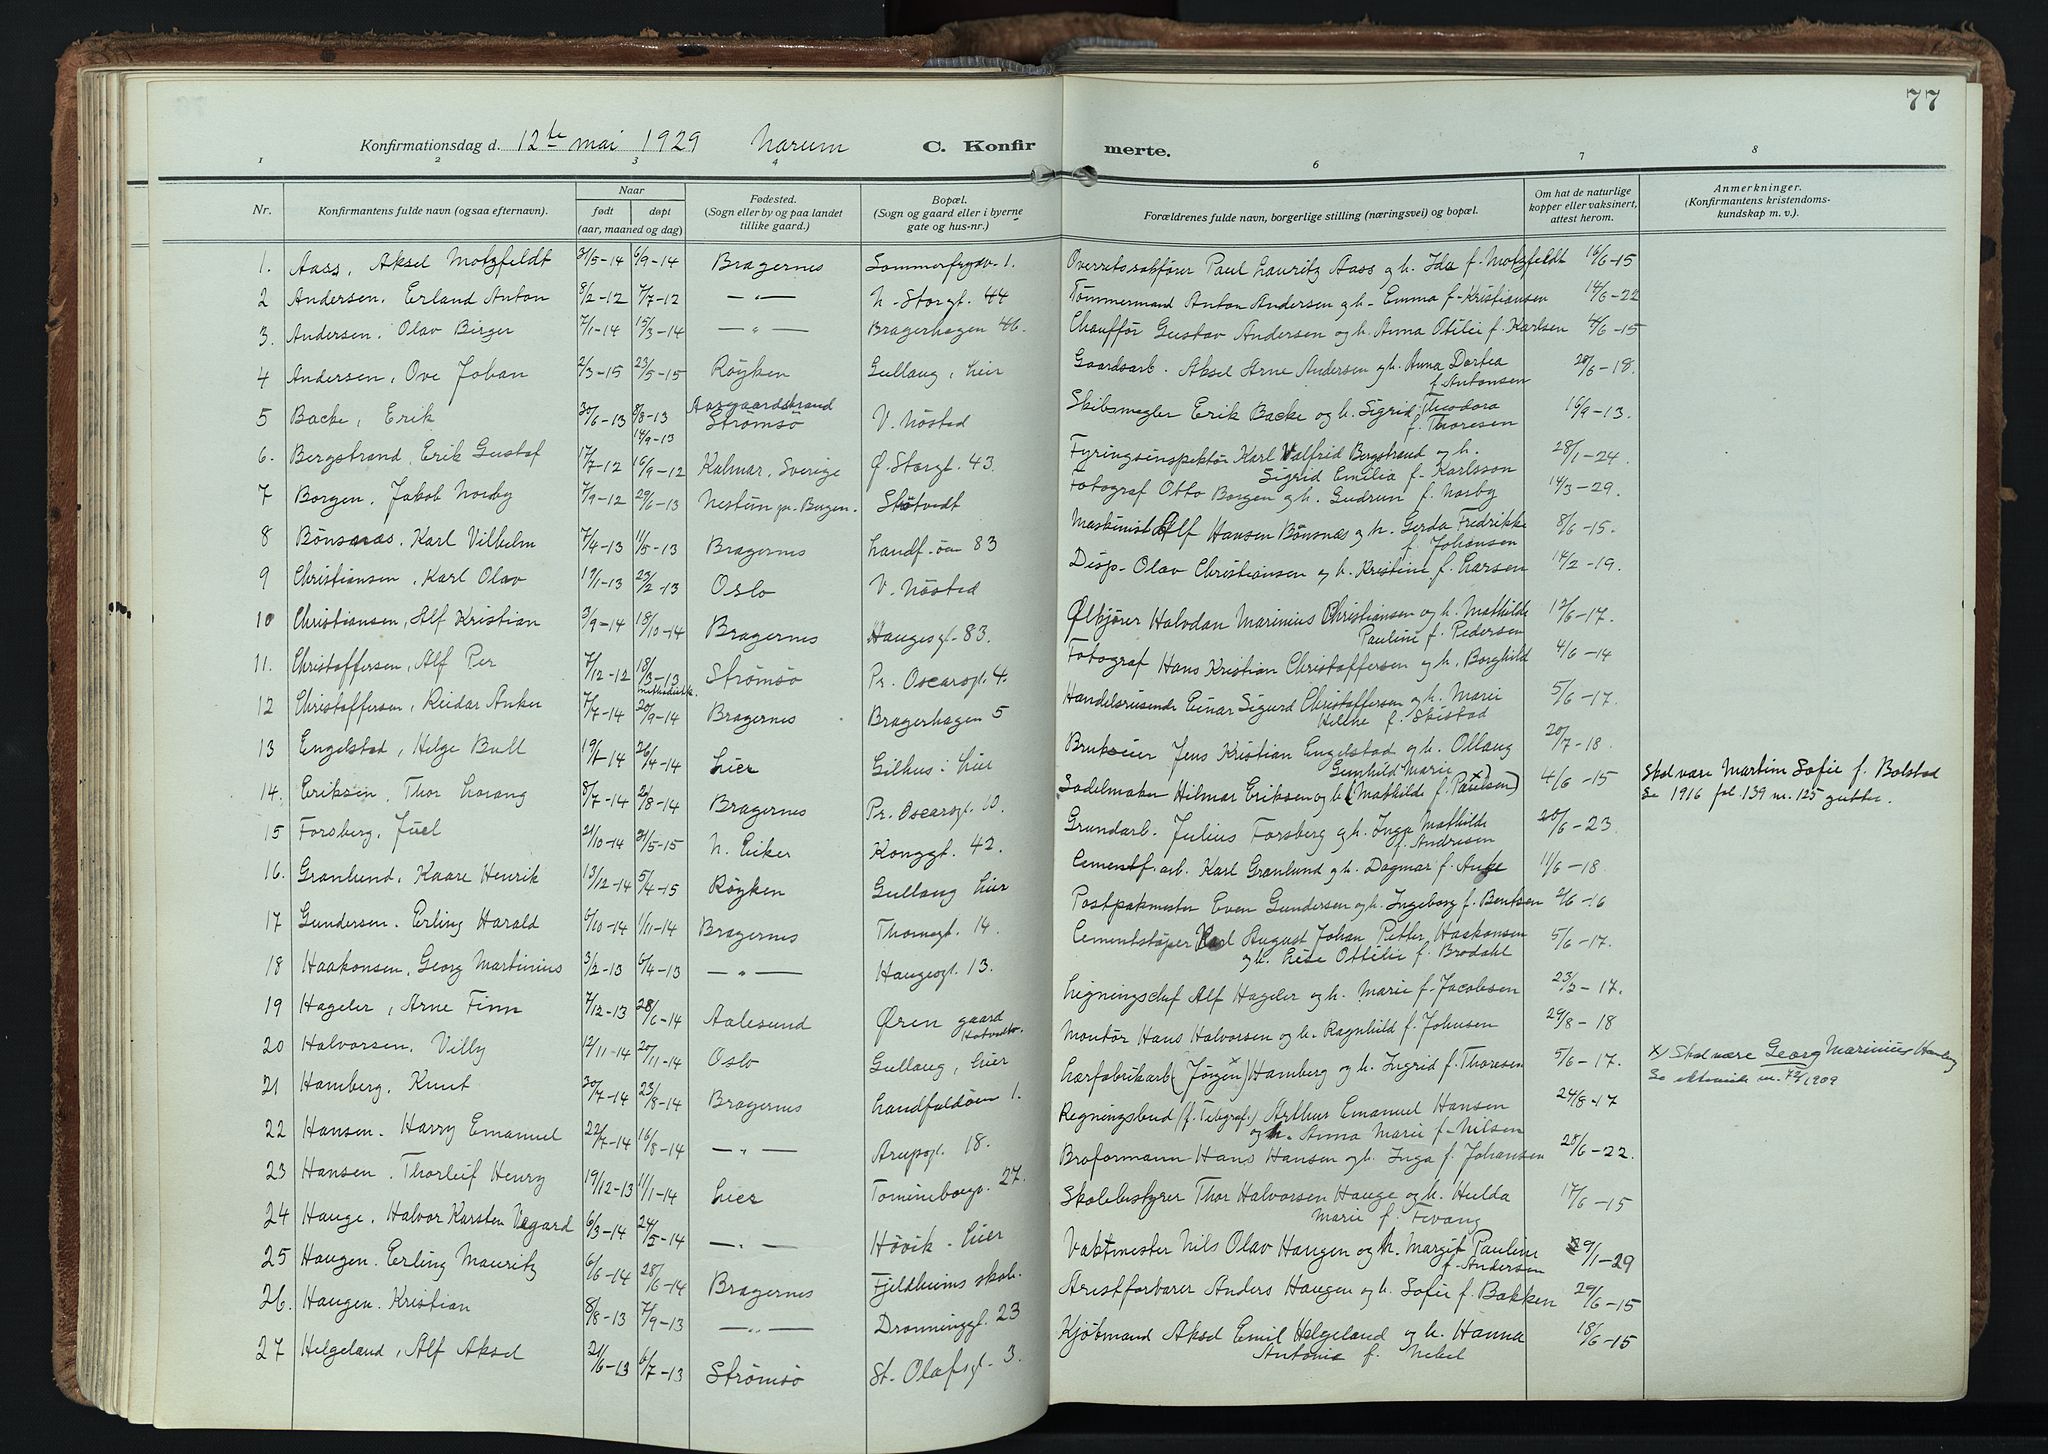 77
Konfirmationsdag d. 12te mai 1929 Narum C. Konfirmerte.
1 2 3 4 5 6 7 8
Nr. Konfirmantens fulde navn (ogsaa efternavn). Naar født døpt (aar, maaned og dag) Fødested. (Sogn eller by og paa landet tillike gaard.) Bopæl. (Sogn og gaard eller i byerne gate og hus-nr.) Forældrenes fulde navn, borgerlige stilling (næringsvei) og bopæl. Om hat de naturlige kopper eller vaksinert, attest herom. Anmerkninger. (Konfirmantens kristendomskundskap m. v.).
1. Aass, Aksel Motzfeldt 31/5-14 6/9-14 Bragernes Sommerfrydv. 1. Overretssakfører Paul Lauritz Aass og h. Ida f. Motzfeldt 16/6-15
2 Andersen. Erland Anton 8/2-12 7/7-12 —"— N. Storgt. 44 Tømmermand Anton Andersen og h. Emma f. Kristiansen 14/6-22
3. Andersen. Olav Birger 7/1-14 15/3-14 —"— Bragerhagen 46. Chauffør Gustav Andersen og h. Anna Otilie f. Karlsen 4/6-15
4 Andersen, Ove Johan 2/3-15 23/5-15 Røyken Gullaug, Lier Gaardsarb. Aksel Arne Andersen og h. Anna Dortea f. Antonsen 20/6-18.
5 Backe, Erik 30/6-13 8/8-13 14/9-13 Aasgaardstrand Strømsø V. Nøsted Skibsmegler Erik Backe og h. Sigrid Theodora f. Thoresen 16/9-13.
6. Bergstrand, Erik Gustaf 17/7-12 16/9-12 Kalmar, Sverige Ø. Storgt. 43. Fyringsinspektør Karl Valfrid Bergstrand og h. Sigrid Emilia f. Karlsson 28/1-24.
7 Borgen. Jakob Norby 7/9-12 29/6-13 Nestun pr. Bergen. Skøtvedt Fotograf Otto Borgen og h. Gudrun f. Norby 14/3-29.
8 Bønsnæs. Karl Vilhelm 7/4-13 11/5-13 Bragernes Landf.øen 83 Maskinist Alf Hansen Bønsnæs og h. Gerda Fredrikke f. Johansen 8/6-15.
9 Christiansen, Karl Olav 19/1-13 23/2-13 Oslo V. Nøsted Disp. Olav Christiansen og h. Kristine f. Larsen 14/2-19.
10 Christiansen, Alf Kristian 3/9-14 18/10-14 Bragernes Haugesgt. 83. Ølkjører Halvdan Marinius Christiansen og h. Mathilde Pauline f. Pedersen 12/6-17.
11. Christoffersen, Alf Per 7/12-12 18/3-13 methodistk. Strømsø Pr. Oscarsgt. 4. Fotograf Hans Kristian Christoffersen og h. Borghild 4/6-14
12 Christoffersen, Reidar Anker 7/7-14 20/9-14 Bragernes Bragerhagen 5 Handelsreisende Einar Sigurd Christoffersen og h. Marie Helene f. Skistad 5/6-17.
13 Engelstad, Helge Bull 19/1-14 26/4-14 Lier Gilhus i Lier Brukseier Jens Kristian Engelstad og h. Ollaug Gunhild Marie 20/7-18.
14. Eriksen, Thor Lorang 8/7-14 20/8-14 Bragernes Pr. Oscarsgt. 10 Sadelmaker Hilmar Eriksen og h. (Mathilde f. Paulsen x) 4/6-15 Skal være Martine Sofie f. Bolstad Se 1916 fol. 139 nr. 125 gutter.
15 Forsberg, Juel 21/10-14 31/5-15 N. Eiker Konggt. 42. Grundarb. Julius Forsberg og h. Inga Mathilde f. Andresen 20/6-23.
16. Granlund, Kaare Henrik 13/12-14 5/4-15 Røyken Gullaug Lier Cementf. arb. Karl Granlund og h. Dagmar f. Anke 11/6-18
17 Gundersen. Erling Harald 6/10-14 1/11-14 Bragernes Thomesgt. 14. Postpakmester Even Gundersen og h. Ingeborg f. Bentsen 2/6-16
18 Haakonsen, Georg Martinius 3/2-13 6/4-13 —"— Haugesgt. 13. Cementstøper Karl August Johan Petter Haakonsen og h. Lise Ottilie f. Brodahl 5/6-17.
19 Hageler, Arne Finn 7/12-13 28/6-14 Aalesund Øren gaard Ligningschef Alf Hageler og h. Marie f. Jacobsen 23/3-17.
20 Halvorsen. Villy 12/11-14 20/11-14 Oslo Gullaug, Lier Montør Hans Halvorsen og h. Ragnhild f. Johnsen 29/8-18
21 Hamberg. Knut 20/7-14 23/8-14 Bragernes Landfaldøen 1. Lærfabrikarb. (Jørgen x) Hamberg og h. Ingrid f. Thoresen 5/6-17. x) Skal være Georg Marinius Hamberg Se nr. 72/1909
22 Hansen. Harry Emanuel 22/7-14 16/8-14 —"— Arupsgt. 18. Regningsbud (f. Telegraf.) Arthur Emanuel Hansen og h. Anna Marie f. Nilsen 24/8-17
23 Hansen. Thorleif Henry 19/12-13 11/1-14 Lier Tomineborgv. 27. Broformann Hans Hansen og h. Inga f. Johansen 28/6-22.
24 Hauge. Halvor Karsten Vegard 6/3-14 24/5-14 —"— Høvik. Lier Skolebestyrer Thor Halvorsen Hauge og h. Hulda Marie f. Tvang 17/6-15
25 Haugen. Erling Mauritz 6/6-14 28/6-14 Bragernes Fjeldheims skole. Vaktmester Nils Olav Haugen og h. Margit Pauline f. Andersen 29/1-29
26. Haugen. Kristian 8/8-13 7/9-13 —"— Dronninggt. 23 Arrestforvarer Anders Haugen og h. Sofie f. Bakken 29/6-15
27 Helgeland, Alf Aksel 21/6-13 6/7-13 Strømsø St. Olafsgt. 3. Kjøtmand Aksel Emil Helgeland og h. Hanna Antonie f. Nebel 18/6-15